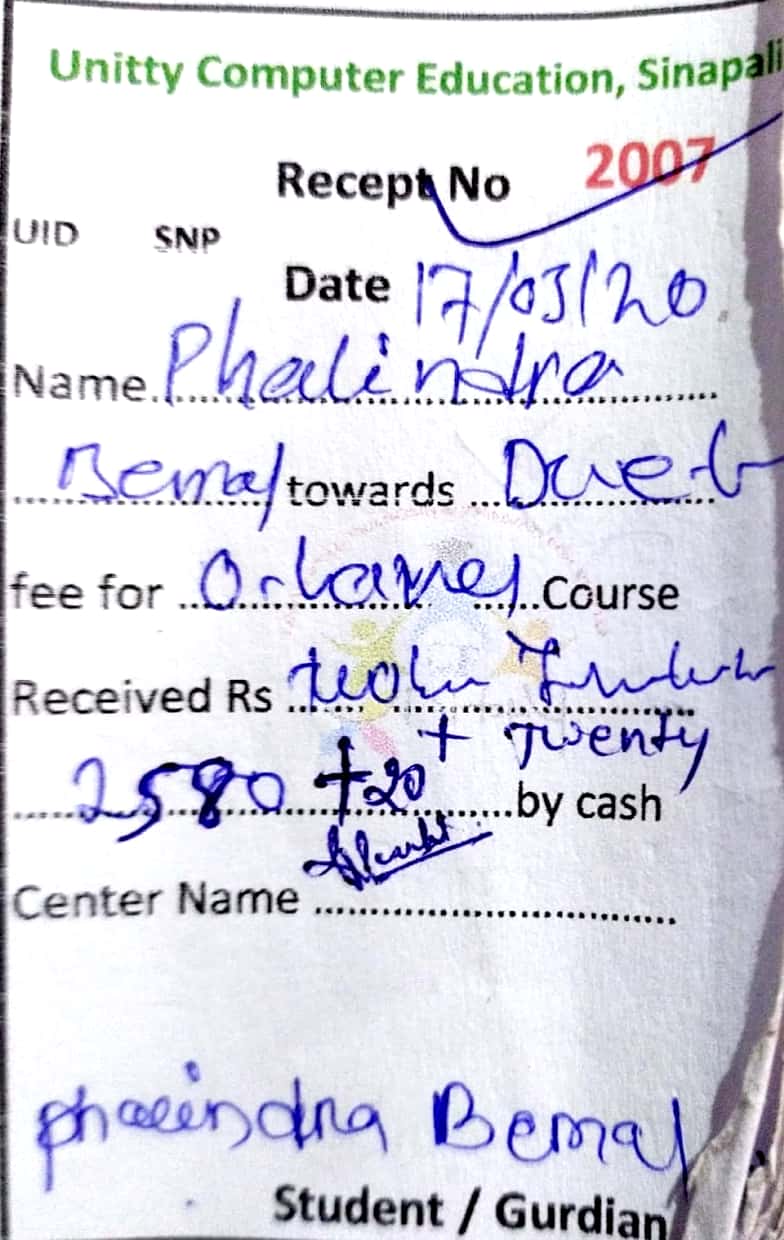 Unitty Computer Education, Sinapali
Recept No 2007
UID SNP
Date 17/03/20
Name Phalindra
Bemal towards
fee for Course
Received Rs
+ Twenty
2580 +20 by cash
Center Name
phalindra Bemal
Student / Gurdian